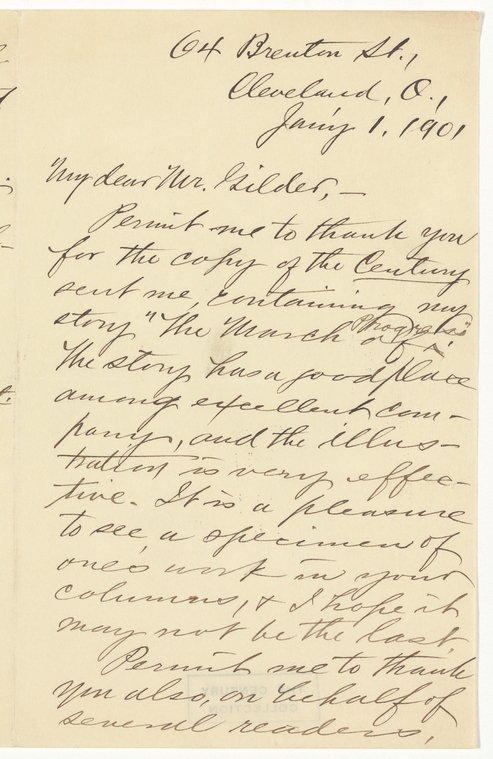 64 Brenton St.,
Cleveland, O.,
Jan'y 1, 1901
My dear Mr. Gilder,—
Permit me to thank you
for the copy of the Century
sent me, containing my
story "The March of Progress."
The story has a good place
among excellent com-
pany, and the illus-
tration is very effec-
tive. It is a pleasure
to see a specimen of
one's work in your
columns, & I hope it
may not be the last.
Permit me to thank
you also, in behalf of
several readers,